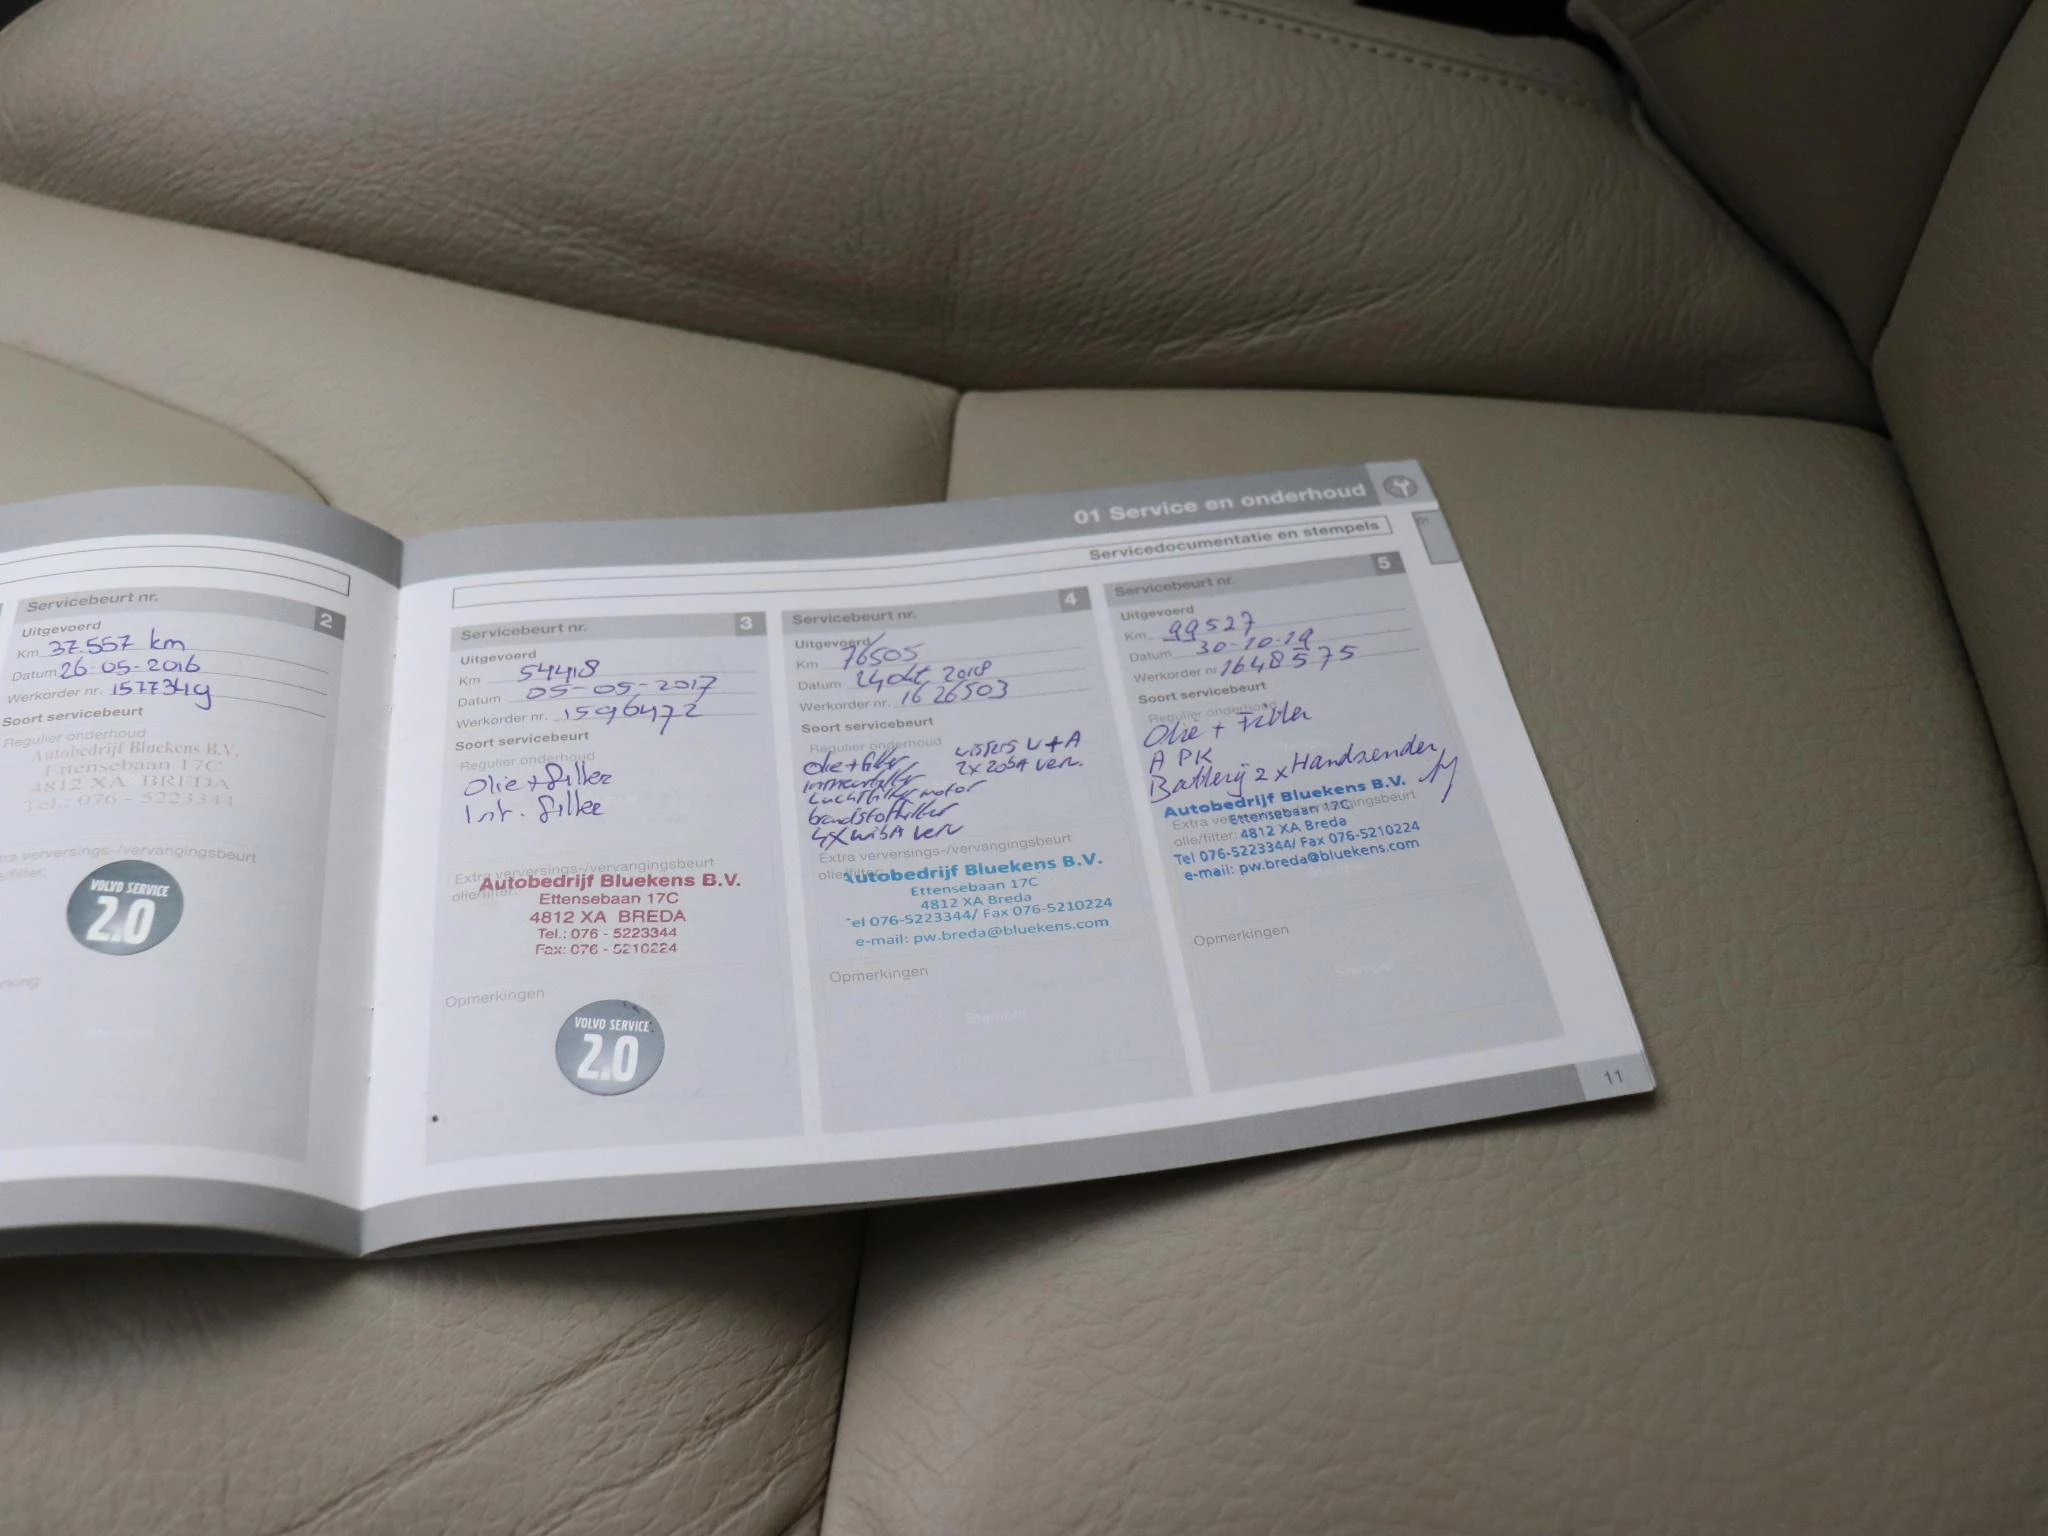 Servicebeurt nr. 2
Uitgevoerd
Km 37.557 km
Datum 26-05-2016
Werkorder nr. 1577349
Soort servicebeurt
Regulier onderhoud
Autobedrijf Bluekens B.V.
Ettensebaan 17C
4812 XA BREDA
Tel.: 076 - 5223344
verversings-/vervangingsbeurt
VOLVO SERVICE
2.0
01 Service en onderhoud
Servicedocumentatie en stempels
Servicebeurt nr. 3
Uitgevoerd
Km 54418
Datum 05-05-2017
Werkorder nr. 1596472
Soort servicebeurt
Regulier onderhoud
Olie + filter
Int. filter
Extra verversings-/vervangingsbeurt
olie/filter:
Autobedrijf Bluekens B.V.
Ettensebaan 17C
4812 XA BREDA
Tel.: 076 - 5223344
Fax: 076 - 5210224
Opmerkingen
VOLVO SERVICE
2.0
Servicebeurt nr. 4
Uitgevoerd
Km 76505
Datum 24 okt 2018
Werkorder nr. 1626503
Soort servicebeurt
Regulier onderhoud
Olie + filter
Luchtfilter motor
Extra verversings-/vervangingsbeurt
olie/filter:
Autobedrijf Bluekens B.V.
Ettensebaan 17C
4812 XA Breda
Tel 076-5223344/ Fax 076-5210224
e-mail: pw.breda@bluekens.com
Opmerkingen
Stempel
Servicebeurt nr. 5
Uitgevoerd
Km 99527
Datum 30-10-19
Werkorder nr 1648575
Soort servicebeurt
Regulier onderhoud
Olie + Filter
APK
Batterij 2x Handzender
Autobedrijf Bluekens B.V.
Ettensebaan 17C
olie/filter: 4812 XA Breda
Tel 076-5223344/ Fax 076-5210224
e-mail: pw.breda@bluekens.com
Opmerkingen
Stempel
11